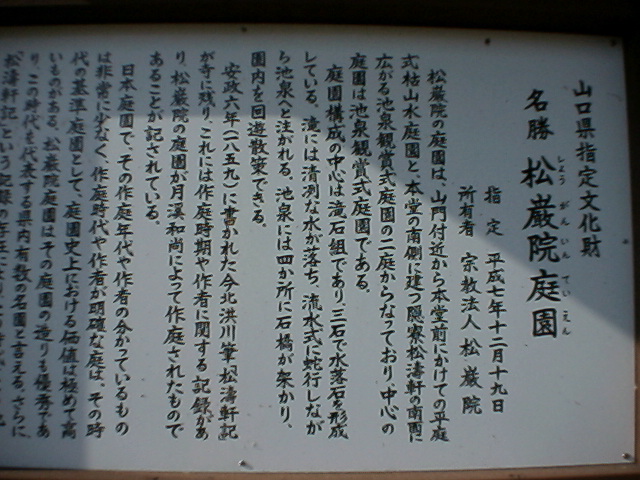 山口県指定文化財
名勝 松巌院庭園
しょう がん いん てい えん
指定 平成七年十二月十九日
所有者 宗教法人 松巌院
松巌院の庭園は、山門付近から本堂前にかけての平庭
式枯山水庭園と、本堂の南側に建つ隠寮松濤軒の南面に
広がる池泉観賞式庭園の二庭からなっており、中心の
庭園は池泉観賞式庭園である。
庭園構成の中心は滝石組であり、三石で水落石を形成
している。滝には清冽な水が落ち、流水式に蛇行しなが
ら池泉へと注がれる。池泉には四か所に石橋が架かり、
園内を回遊散策できる。
安政六年(一八五九)に書かれた今北洪川筆「松濤軒記」
が寺に残り、これには作庭時期や作者に関する記録があ
り、松巌院の庭園が月渓和尚によって作庭されたもので
あることが記されている。
日本庭園で、その作庭年代や作者の分かっているもの
は非常に少なく、作庭時代や作者が明確な庭は、その時
代の基準庭園として、庭園史上における価値は極めて高
いものがある。松巌院庭園はその庭園の造りも優秀であ
り、この時代を代表する県内有数の名園と言える。さらに
「松濤軒記」という記録の存在により